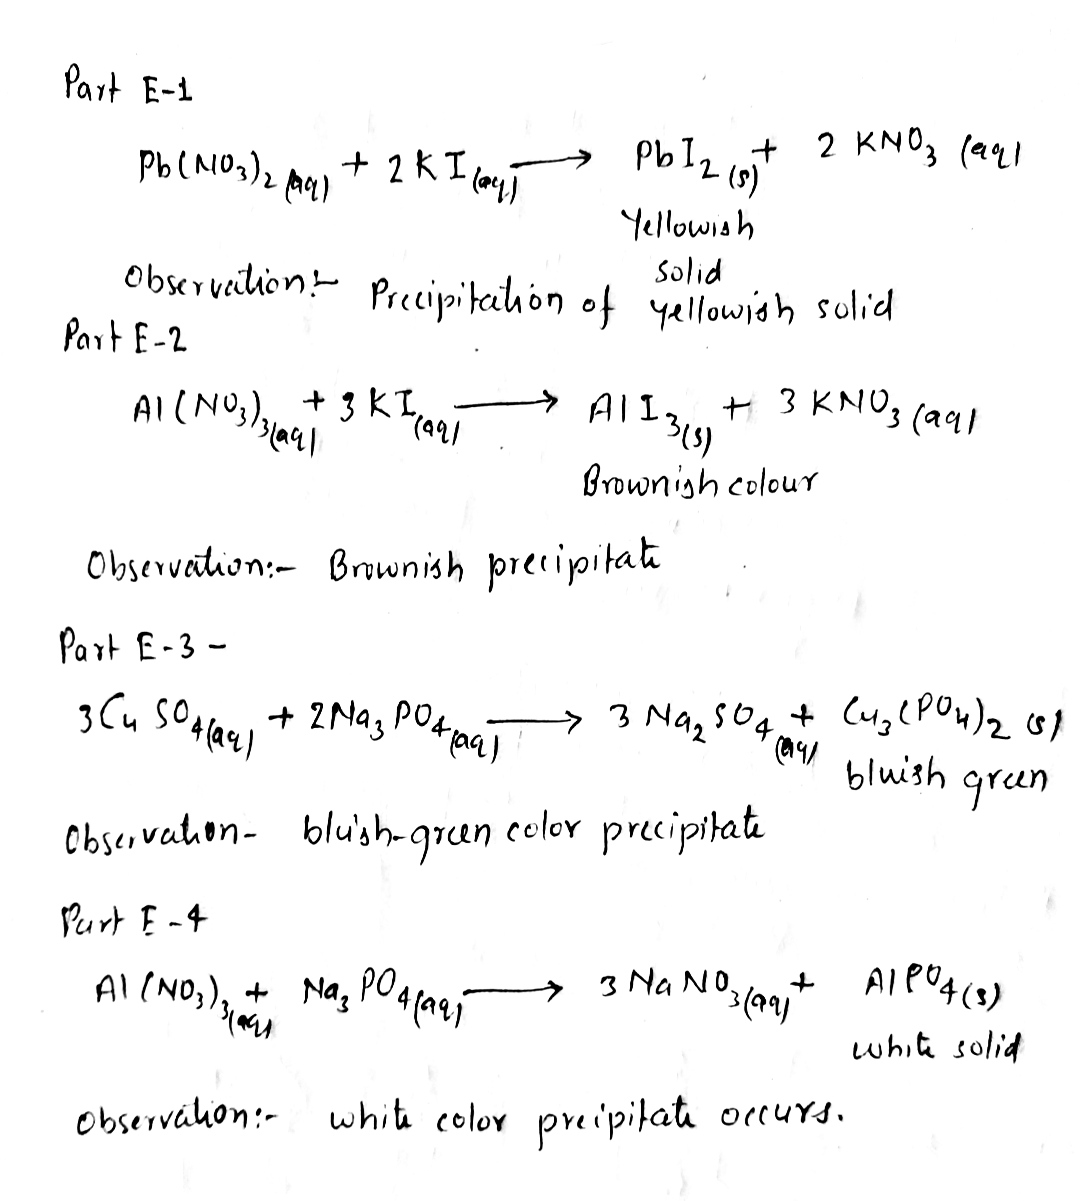 Part E-1
Pb(NO3)2 (aq) + 2KI (aq) → PbI2 (s) + 2 KNO3 (aq)
Yellowish
solid
Observation:- Precipitation of yellowish solid
Part E-2
Al(NO3)3(aq) + 3KI(aq) → AlI3(s) + 3 KNO3 (aq)
Brownish colour
Observation:- Brownish precipitate
Part E-3 -
3CuSO4(aq) + 2Na3PO4(aq) → 3 Na2SO4 (aq) + Cu3(PO4)2 (s)
bluish green
Observation- bluish-green color precipitate
Part E-4
Al(NO3)3(aq) + Na3PO4(aq) → 3 NaNO3(aq) + AlPO4(s)
white solid
Observation:- white color precipitate occurs.